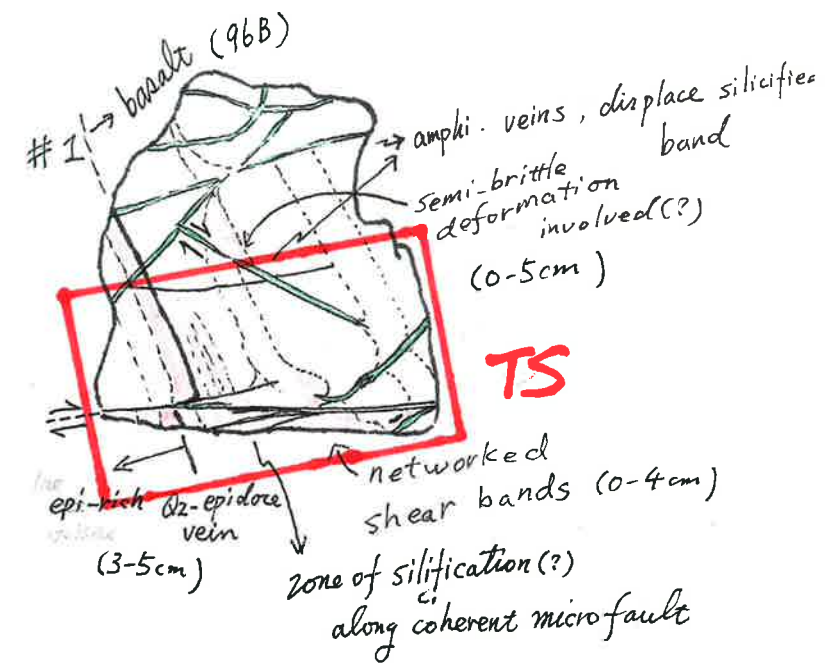 basalt (96B)
#1
amphi. veins, displace silicifie
band
semi-brittle
deformation
involved(?)
(0-5cm)
TS
networked
shear bands (0-4cm)
epi-rich Qz-epidote
vein
(3-5cm)
zone of silification(?)
ci
along coherent microfault